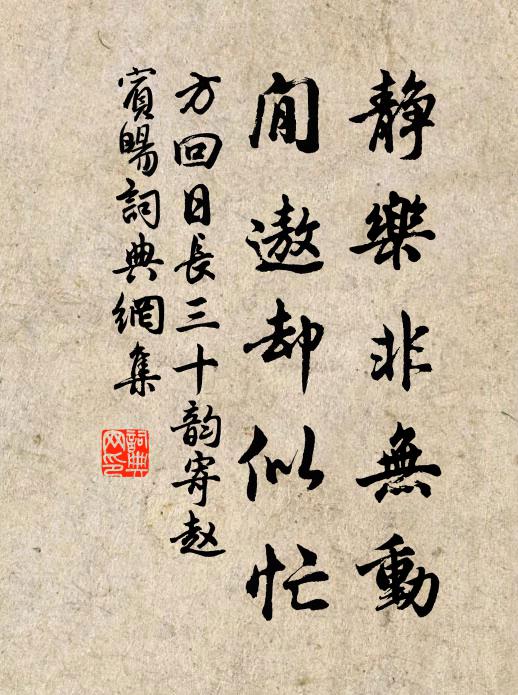 靜樂非無動
閒遨却似忙
方回日長三十韵寄赵
賓暘詞典網集
詞典
网印